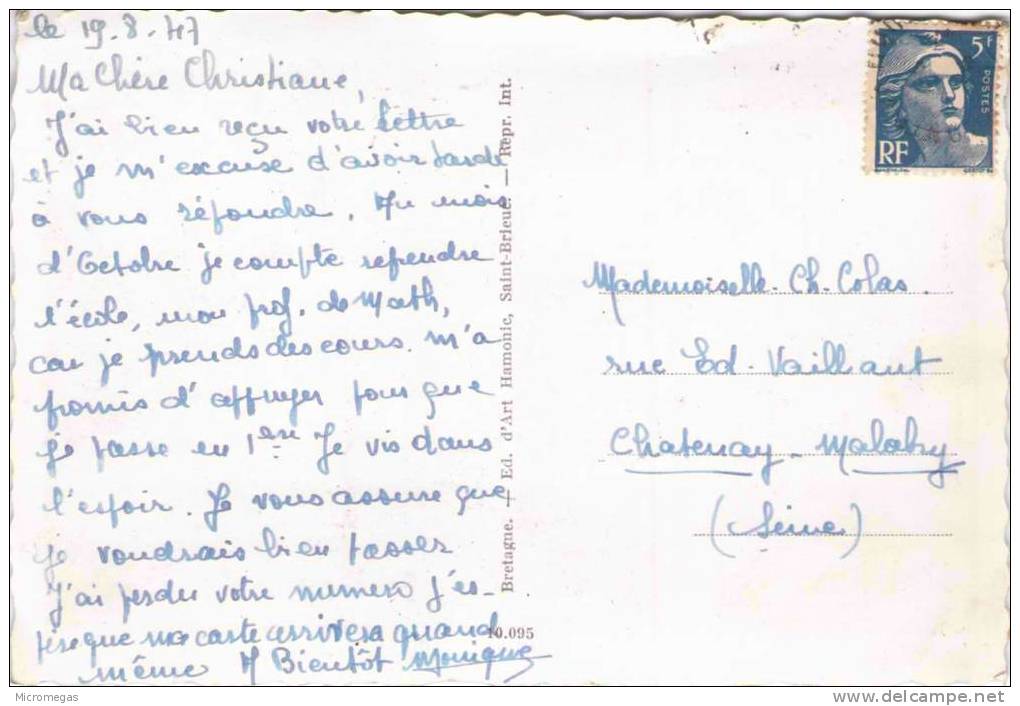 le 19.8.47
Ma Chère Christiane,
J'ai bien reçu votre lettre
et je m'excuse d'avoir tardé
à vous répondre. Au mois
d'Octobre je compte reprendre
l'école, mon prof. de Math,
car je prends des cours. m'a
promis d'appuyer pour que
je passe en 1ère Je vis dans
l'espoir. Je vous assure que
je voudrais bien passer
J'ai perdu votre numero J'es-
père que ma carte arrivera quand
même A Bientôt Monique
Bretagne. — Ed. d'Art Hamonic, Saint-Brieuc. — Repr. Int.
10.095
5F
POSTES
RF
Mademoiselle. Ch. Colas.
rue Ed. Vaillant
Chatenay-Malabry
(Seine)
Micromegas
delcampe.net